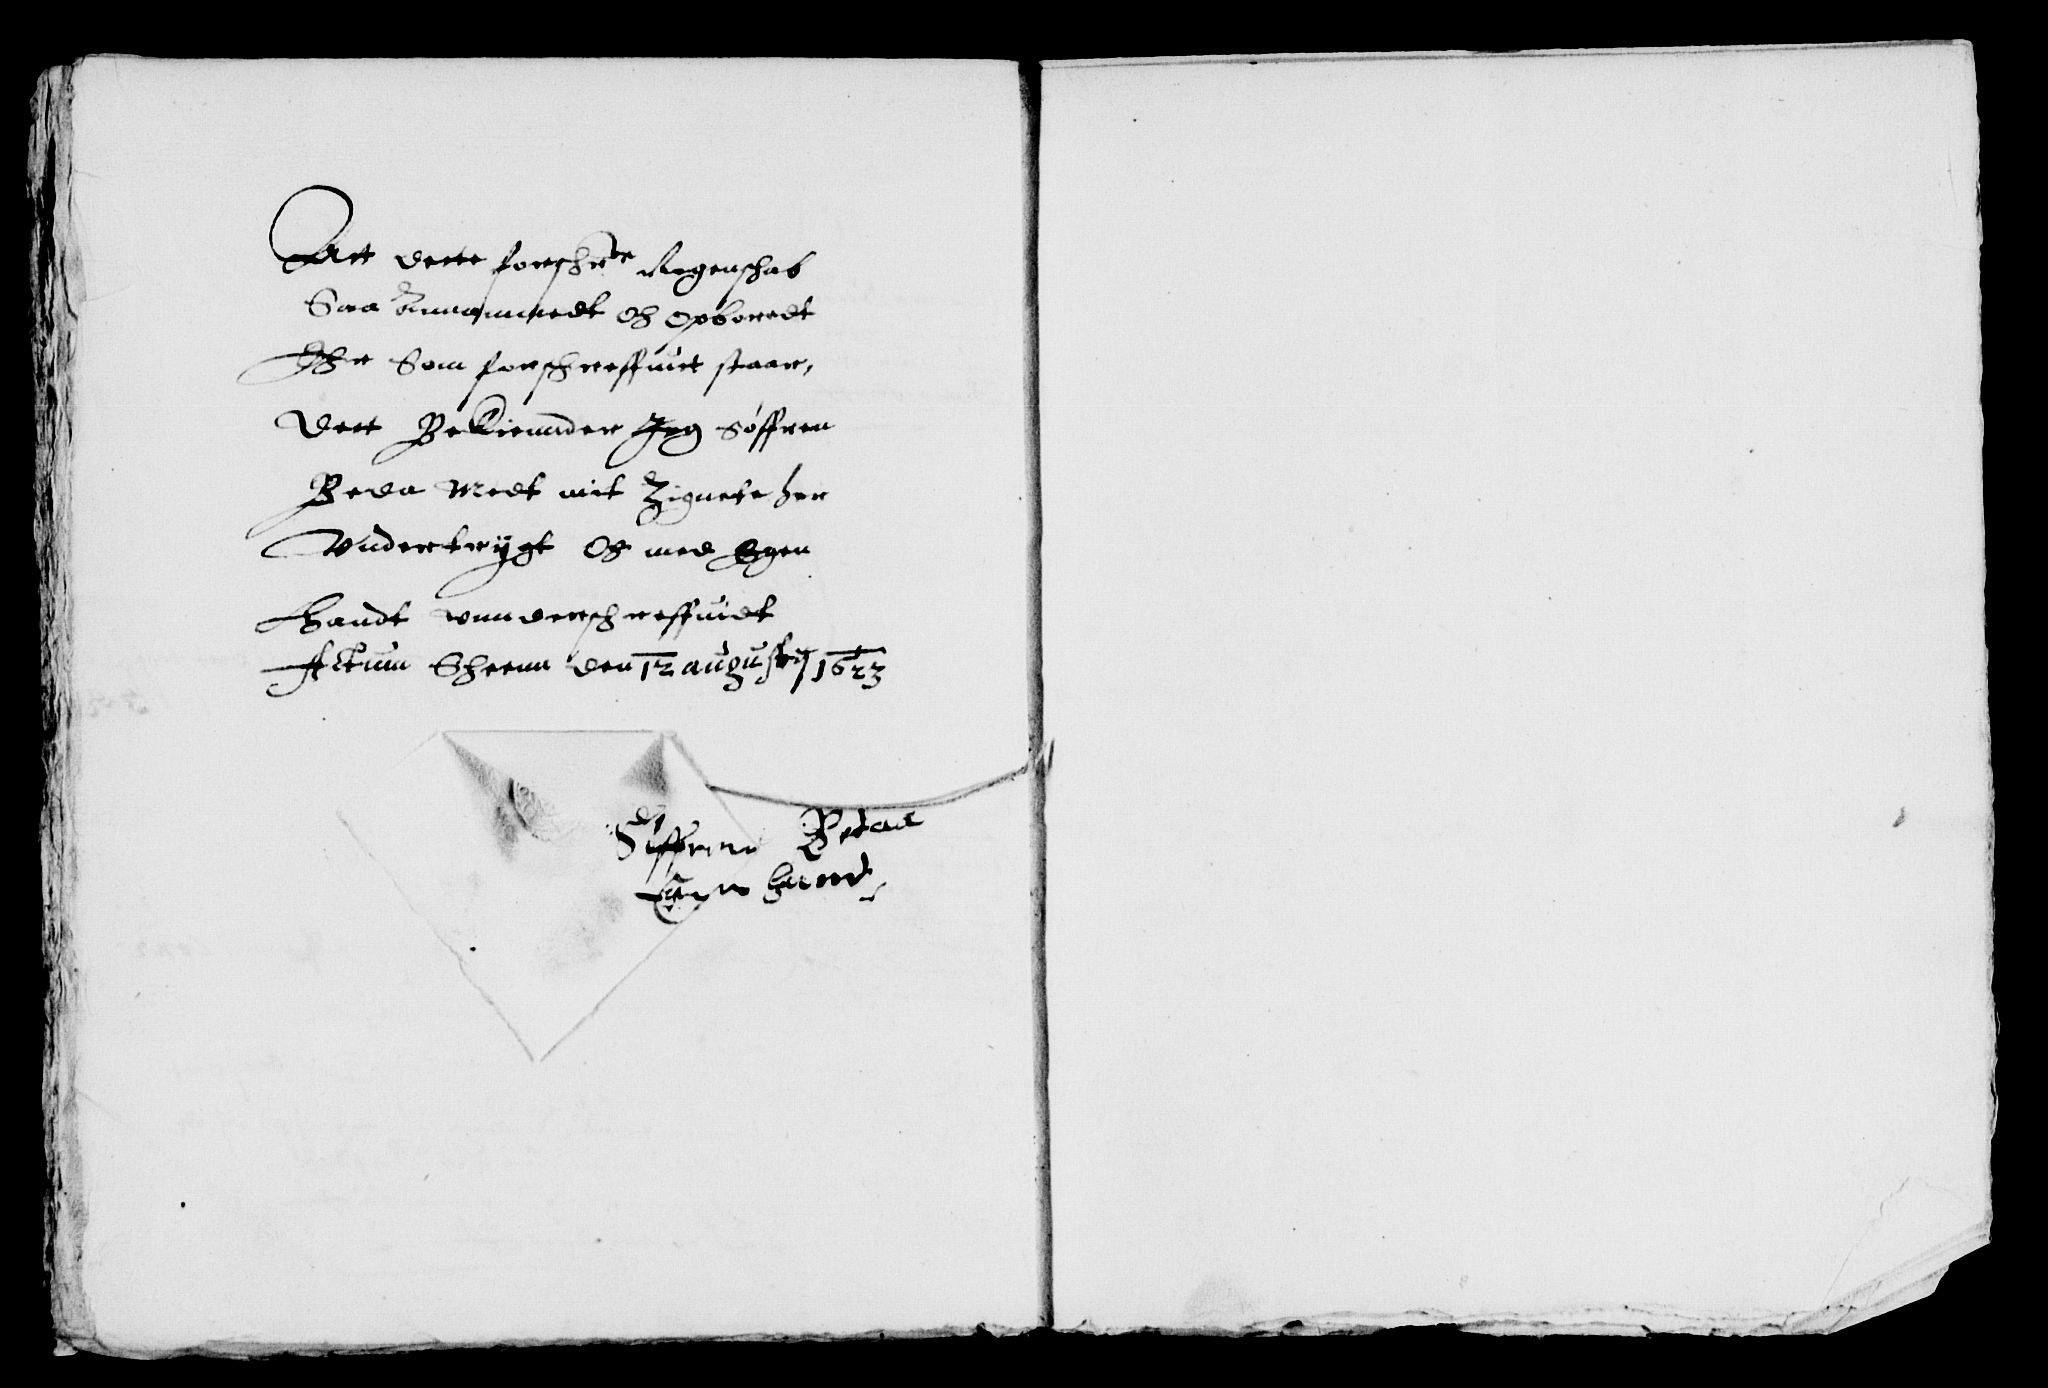 Att dette forschrne Regenschab
Saa Annammedt och opboredt
Ehr Som forschreffuit staar,
Dett Bekiennder Jeg Søffren
Beda Medt mit Zignete her
Vndertrygt Och med Egen
Handt vnnderschreffuidt
Aktum Scheenn den 12 augusty 1623
Siffrenn Betae
Egen hand